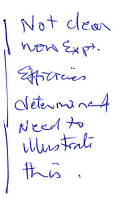 Not clear
how Expt.
Efficies
determined
Need to
illustrate
this.